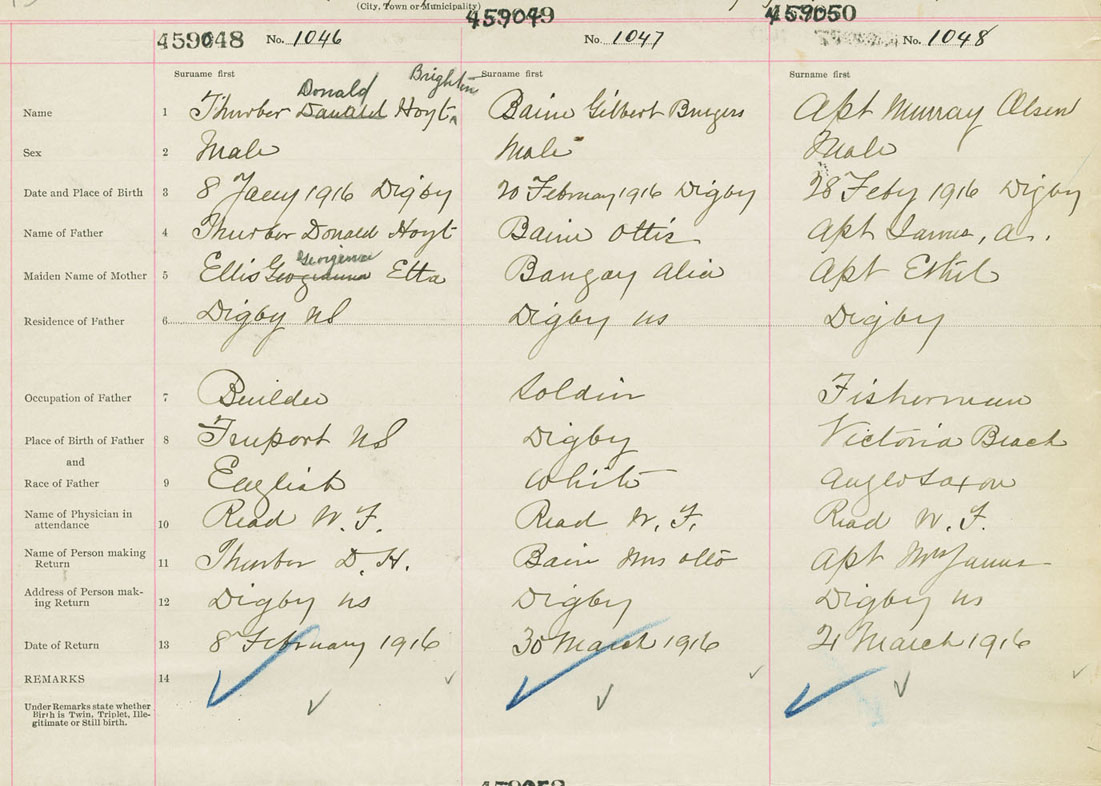 (City, Town or Municipality)
459048 No. 1046
459049 No. 1047
459050 No. 1048
Surname first Surname first Surname first
Donald Brighton
Name 1 Thurber Donald Hoyt Baine Gilbert Burgers Apt Murray Olsen
Sex 2 Male Male Male
Date and Place of Birth 3 8 Jany 1916 Digby 20 February 1916 Digby 28 Feby 1916 Digby
Name of Father 4 Thurber Donald Hoyt Baine Ottis Apt James, A.
Maiden Name of Mother 5 Ellis Georgianna Etta Bangay Alia Apt Ethel
Residence of Father 6 Digby NS Digby NS Digby
Occupation of Father 7 Builder Soldier Fisherman
Place of Birth of Father 8 Freeport NS Digby Victoria Beach
and
Race of Father 9 English White Anglo Saxon
Name of Physician in attendance 10 Read W. F. Read W. F. Read W. F.
Name of Person making Return 11 Thurber D. H. Bain Mrs Otto Apt Mrs James
Address of Person making Return 12 Digby NS Digby Digby NS
Date of Return 13 8 February 1916 30 March 1916 21 March 1916
REMARKS 14
Under Remarks state whether
Birth is Twin, Triplet, Ille-
gitimate or Still birth.